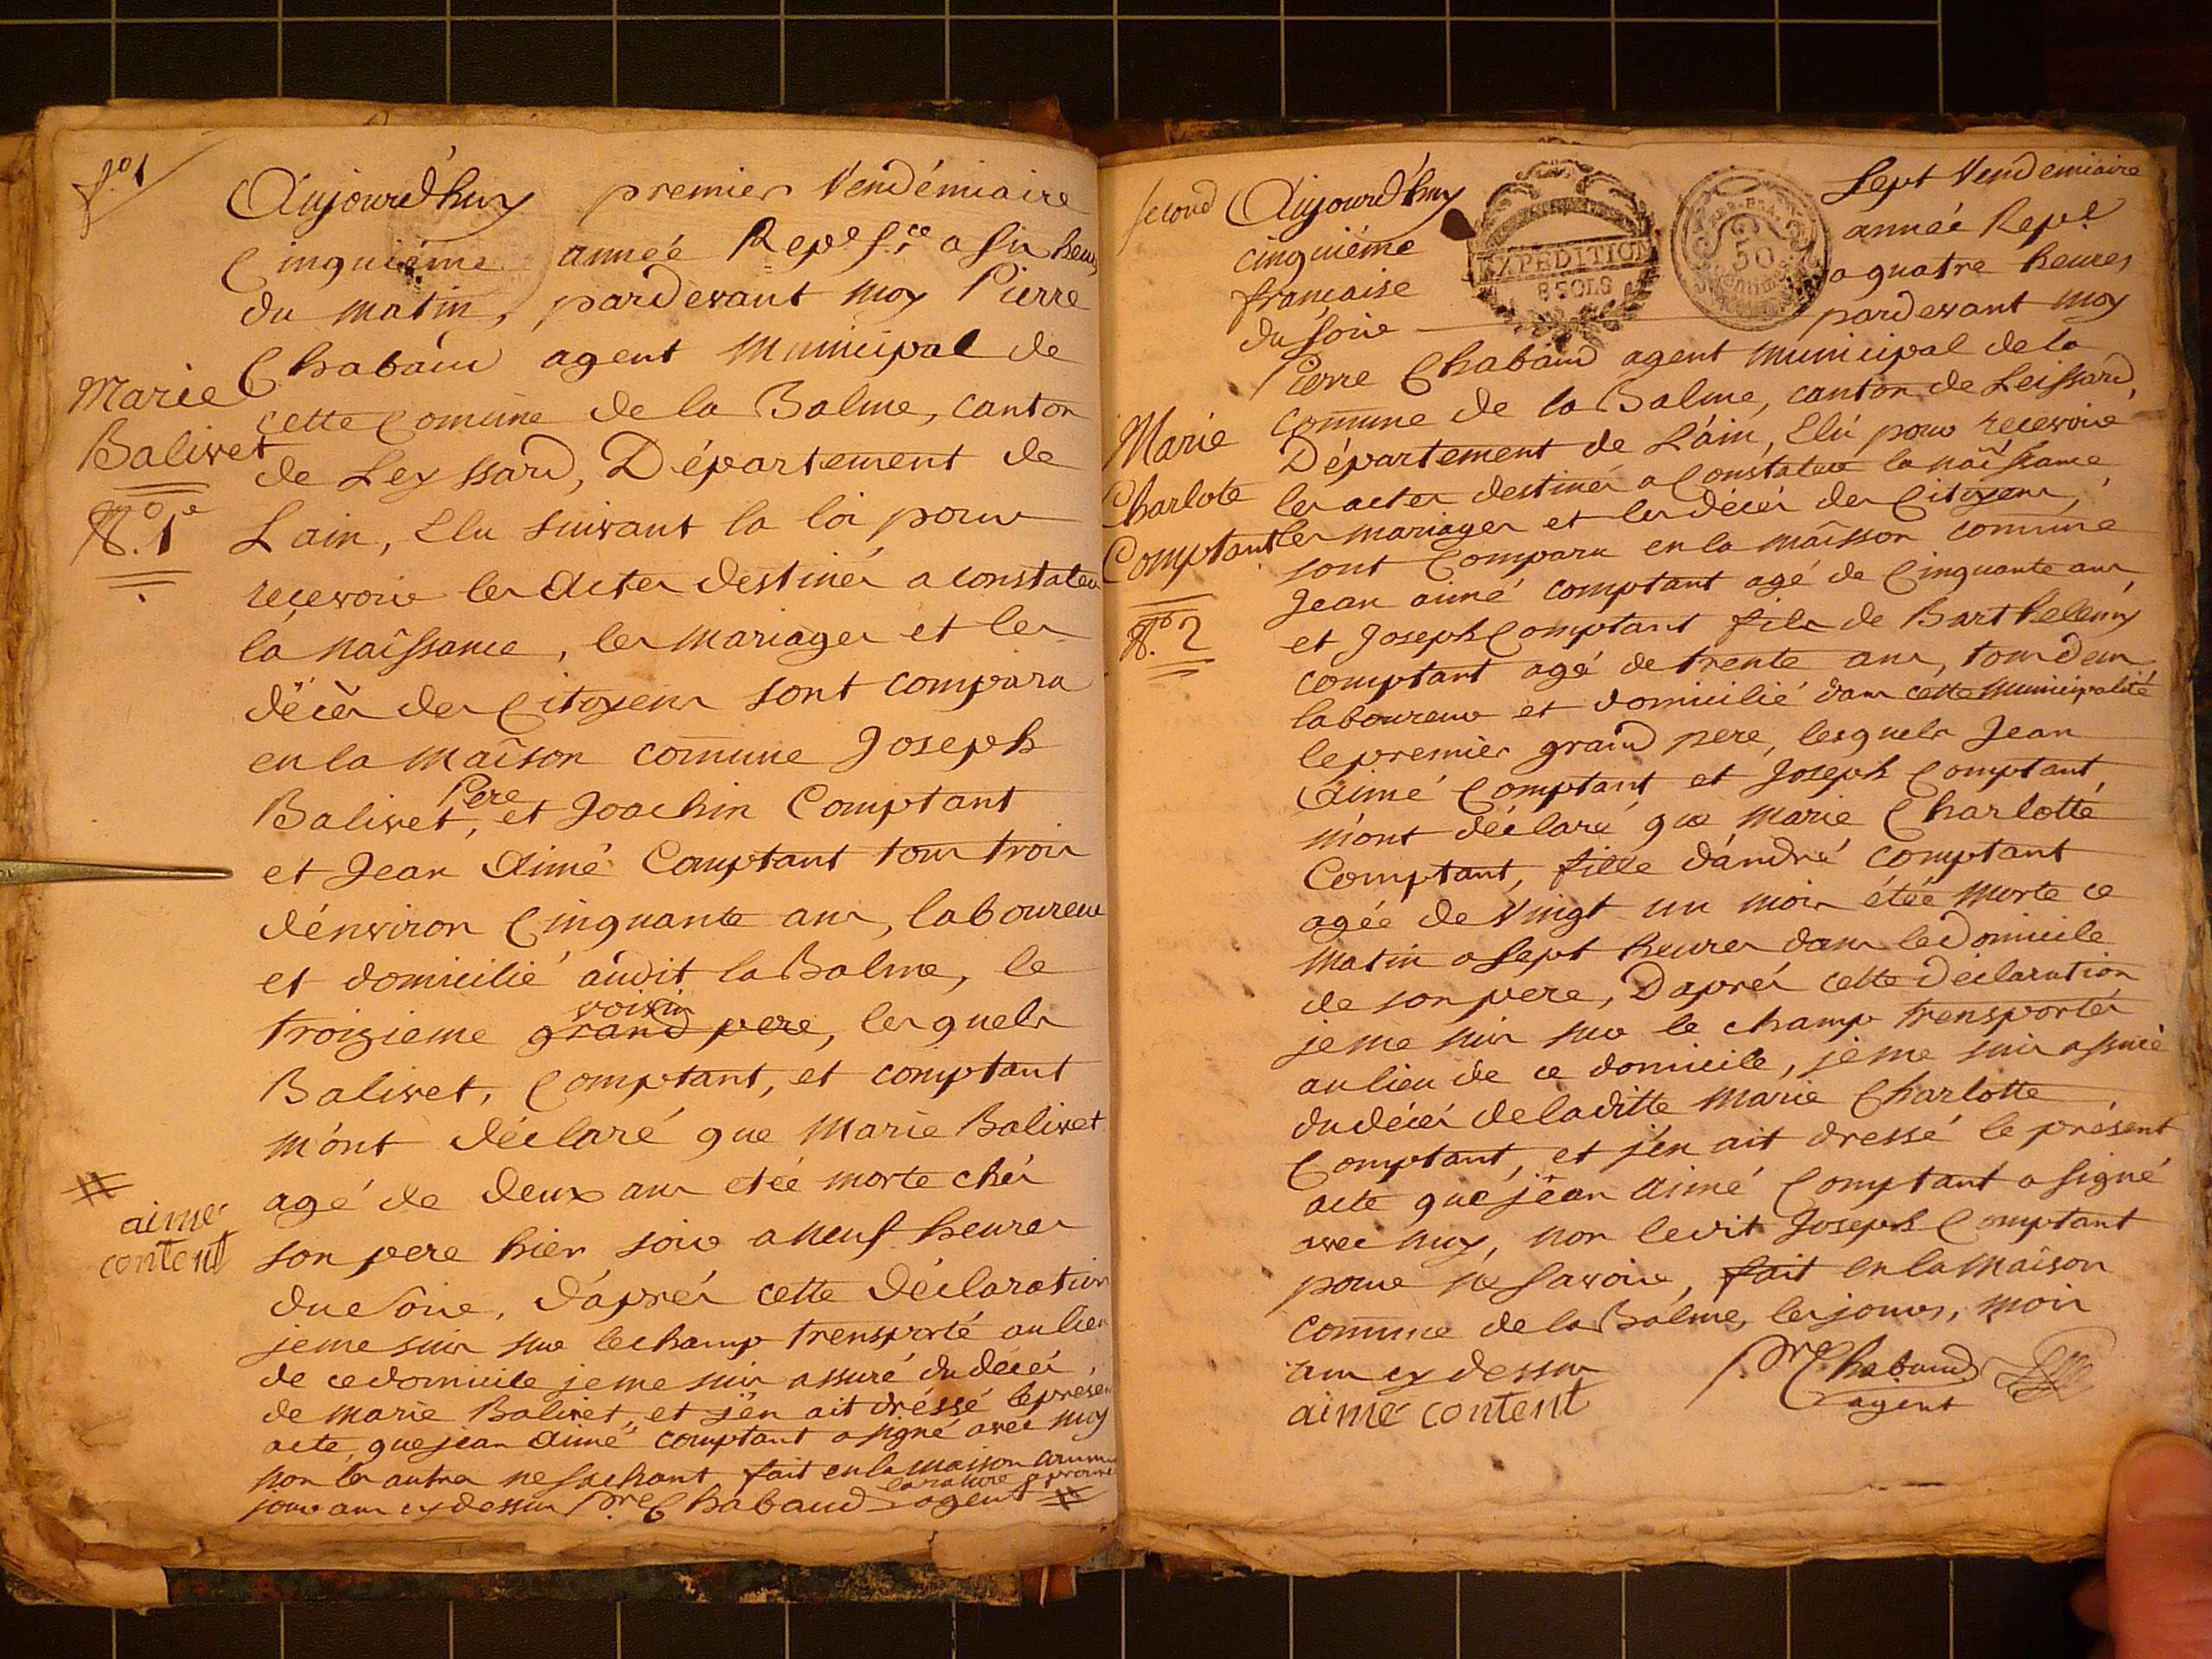 f.o 1
Aujourd'huy premier Vendémiaire
Cinquiéme année Repe f.se a six heures
du matin, pardevant moy Pierre
Chabaud agent Municipal de
cette Comune de la Balme, canton
de Leyssard, Département de
Lain, Elu suivant la loi pour
recevoir les Actes destinés a constater
la naîssance, les mariages et les
décès des Citoyens sont comparu
en la maîson comune Joseph
Balivet, Pere et Joachin Comptant
et Jean Aimé Comptant tous trois
dénviron Cinquante ans, laboureur
et domicilié audit la Balme, le
troizieme grand pere voisin, lesquels
Balivet, Comptant, et comptant
m'ont déclaré que Marie Balivet
agé de deux ans etéé morte chés
son pere hier soir a neuf heures
du soir, d'aprés cette déclaration
jeme suis sur lechamp transporté au lieu
de cedomicile jeme suis assuré du décés
de Marie Balivet, et j'én ait dréssé le présen
acte, que jean aimé comptant a signé avec moy
non les autres ne sachant fait en la maison commu
jour ans cy dessus Pre Chabaud agent #
larature aprouvé
Marie
Balivet
N.o 1e
#
aimé
content
second Aujourd'huy Sept Vendemiaire
cinquiéme année Repe
française a quatre heures
du soir pardevant moy
EXPEDITION
8 SOLS
50
Centimes
Pierre Chabaud agent municipal de la
Comune de la Balme, canton de Leissard,
Département de L'ain, Elú pour recevoir
les actes destinés a Constater la naîssance
les mariages et les décés des Citoyens,
sont Comparu en la maîsson comune
Jean aimé comptant agé de Cinquante ans
et Joseph Comptant fils de Barthelemy
comptant agé de trente ans, tous deux
laboureur et domicilié dans cette municipalité
le premier grand pere, lesquels Jean
Aimé Comptant et Joseph Comptant,
m'ont déclaré que Marie Charlotte
Comptant, fille d'andré Comptant
agée de Vingt un mois étéé morte ce
matin a Sept heures dans le domicile
de son pere, D'aprés cette déclaration
jeme suis sur le champ transportés
au lieu de ce domicile, jeme suis assuré
du décés de laditte Marie Charlotte
Comptant, et j'én ait dressé le présent
acte que jéan aimé Comptant a signé
avec moy, non ledit Joseph Comptant
pour ne savoire, fait en la maîson
comune de la Balme, les jours, mois
ans cy dessus Pre Chabaud
aimé content agent
Marie
Charlote
Comptant
N.o 2